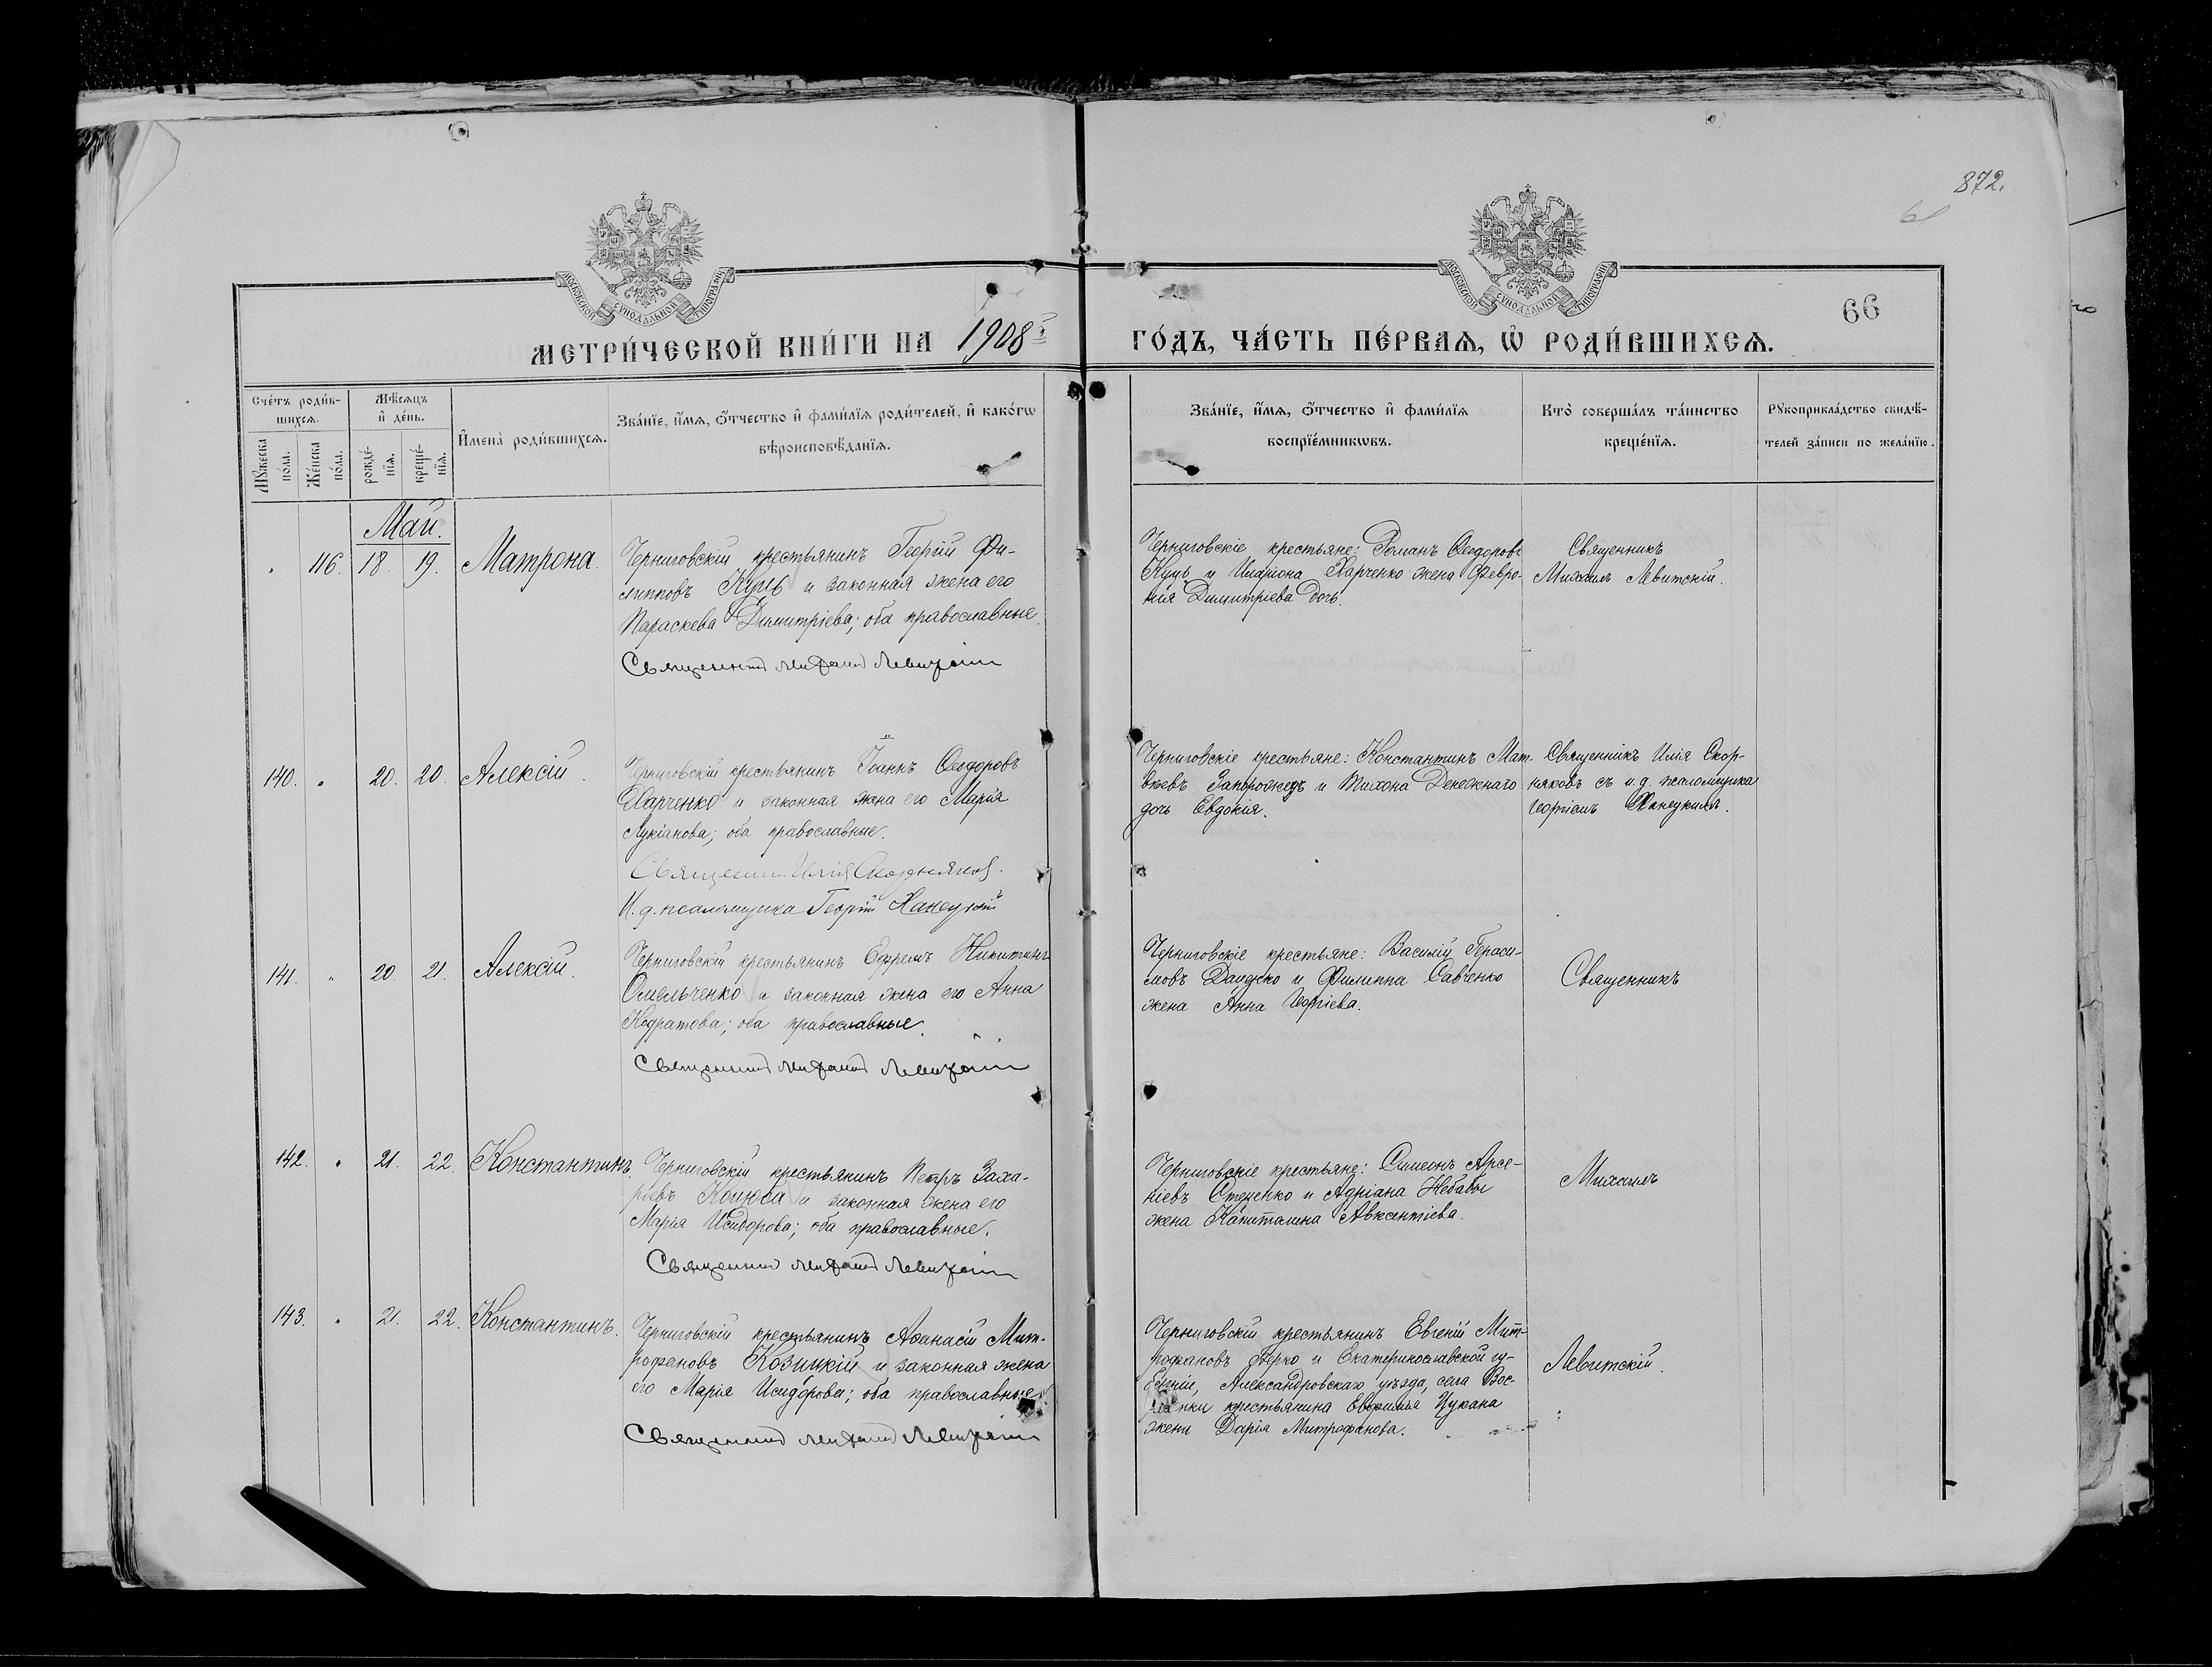 872.
61
66
МОСКОВСКОЙ СѴНОДАЛЬНОЙ ТИПОГРАФІИ
МОСКОВСКОЙ СѴНОДАЛЬНОЙ ТИПОГРАФІИ
МЕТРИ́ЧЕСКОЙ КНИ́ГИ НА 1908й ГО́ДЪ, ЧА́СТЬ ПЕ́РВАѦ, Ѽ РОДИ́ВШИХСѦ.
Сче́тъ роди́в-
шихсѧ.
Мꙋжеска по́ла.
Же́нска по́ла.
Мѣ́сѧцъ
и҆ де́нь.
рожде́-
нїѧ.
креще́-
нїѧ.
И҆мена̀ роди́вшихсѧ.
Зва́нїе, и҆́мѧ, ѻ҆́тчество и҆ фами́лїѧ роди́телей, и҆ како́гѡ
вѣроисповѣ́данїѧ.
Зва́нїе, и҆́мѧ, ѻ҆́тчество и҆ фами́лїѧ
воспрїе́мникѡвъ.
Кто̀ соверша́лъ та́инство
креще́нїѧ.
Рꙋкоприкла́дство свидѣ́-
телей за́писи по жела́нїю.
Май.
" 116. 18. 19. Матрона.
Черниговскій крестьянинъ Георгій Фи-
липповъ Куць и законная жена его
Параскева Димитріева; оба православные.
Священникъ Михаилъ Левитскій
Черниговскіе крестьяне: Романъ Ѳеодоровъ
Куць и Иларіона Харченко жена Февро-
нія Димитріева дочь.
Священникъ
Михаилъ Левитскій.
140. " 20. 20. Алексій.
Черниговскій крестьянинъ Іоаннъ Ѳеодоровъ
Харченко и законная жена его Марія
Лукіанова; оба православные.
Священникъ Илія Скорняковъ.
И. д. псаломщика Георгій Ханецкій
Черниговскіе крестьяне: Константинъ Мат-
вѣевъ Запорожецъ и Тихона Денежнаго
дочь Евдокія.
Священникъ Илія Скор-
няковъ съ и.д. псаломщика
Георгіемъ Ханецкимъ.
141. " 20. 21. Алексій.
Черниговскій крестьянинъ Ефремъ Никитинъ
Омельченко и законная жена его Анна
Кодратова; оба православные.
Священникъ Михаилъ Левитскій
Черниговскіе крестьяне: Василій Гераси-
мовъ и Филиппа Савченко
жена Анна Георгіева.
Священникъ
142. " 21. 22. Константинъ.
Черниговскій крестьянинъ Петръ Заха-
ріевъ Коцюба и законная жена его
Марія Исидорова; оба православные.
Священникъ Михаилъ Левитскій
Черниговскіе крестьяне: Симеонъ Арсе-
ніевъ Стеценко и Адріана Небабы
жена Капиталина Авксентіева.
Михаилъ
143. " 21. 22. Константинъ.
Черниговскій крестьянинъ Аѳанасій Мит-
рофановъ Козицкій и законная жена
его Марія Исидорова; оба православные.
Священникъ Михаилъ Левитскій
Черниговскій крестьянинъ Евгеній Мит-
рофановъ и Екатеринославской гу-
берніи, Александровскаго уѣзда, села Вос-
крестьянина Евфимія Цукана
жена Дарія Митрофанова.
Левитскій.